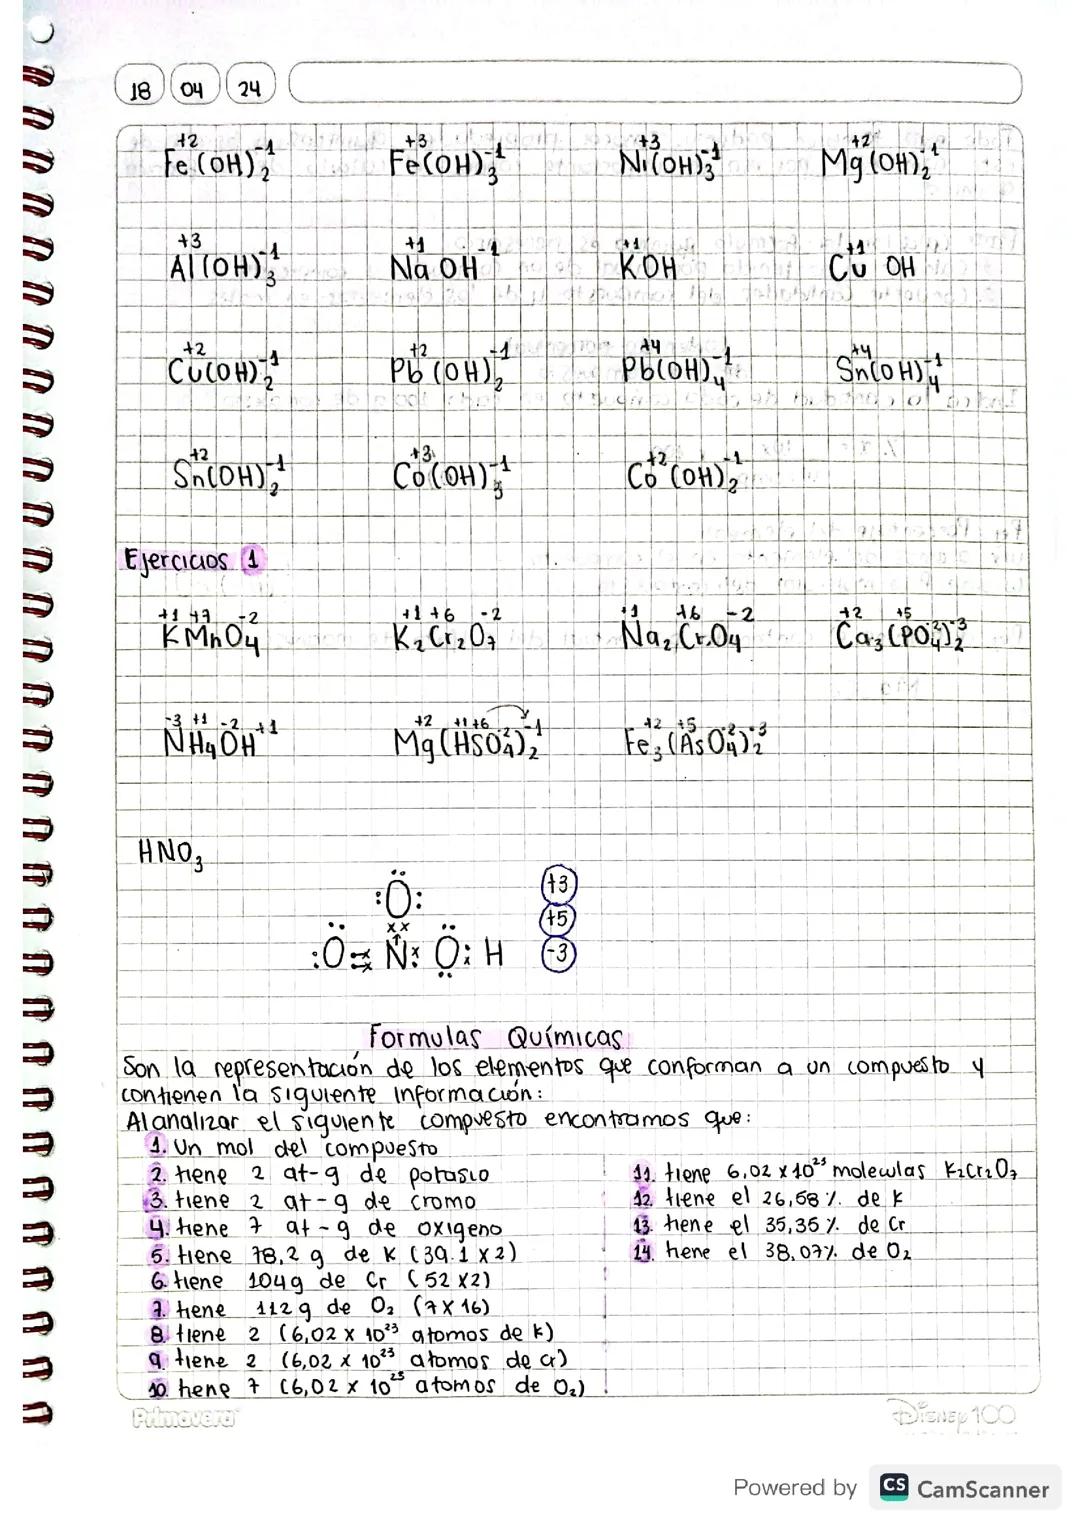 18 04 24
+2 -1 +3 -1 +3 -1 +2 -1
Fe(OH)₂ Fe(OH)₃ Ni(OH)₃ Mg(OH)₂
+3 -1 +1 -1 +1 +1
Al(OH)₃ Na OH KOH Cu OH
+2 -1 +2 -1 +4 -1 +4 -1
Cu(OH)₂ Pb(OH)₂ Pb(OH)₄ Sn(OH)₄
+2 -1 +3 -1 +2 -1
Sn(OH)₂ Co(OH)₃ Co(OH)₂
Ejercicios 1
+1 +7 -2 +1 +6 -2 +1 +6 -2 +2 +5 -2 -3
KMnO₄ K₂Cr₂O₇ Na₂CrO₄ Ca₃(PO₄)₂
-3 +1 -2 +1 +2 +1 +6 -2 -1 +2 +5 -2 -3
NH₄OH Mg(HSO₄)₂ Fe₃(AsO₄)₂
HNO₃
:Ö: +3
+5
:Ö N Ö: H -3
Formulas Químicas
Son la representación de los elementos que conforman a un compuesto y
contienen la siguiente información:
Al analizar el siguiente compuesto encontramos que:
1. Un mol del compuesto
2. tiene 2 at-g de potasio
3. tiene 2 at-g de cromo
4. tiene 7 at-g de oxigeno
5. tiene 78,2 g de K (39.1 x 2)
6. tiene 104g de Cr (52 x2)
7. tiene 112 g de O₂ (7x16)
8. tiene 2 (6,02 x 10²³ atomos de k)
9. tiene 2 (6,02 x 10²³ atomos de cr)
10. tiene 7 (6,02 x 10²³ atomos de O₂)
11. tiene 6,02 x 10²³ moleculas K₂Cr₂O₇
12. tiene el 26,58 %. de K
13. tiene el 35,35 %. de Cr
14. tiene el 38,07%. de O₂
Primavera Disney 100
Powered by CS CamScanner